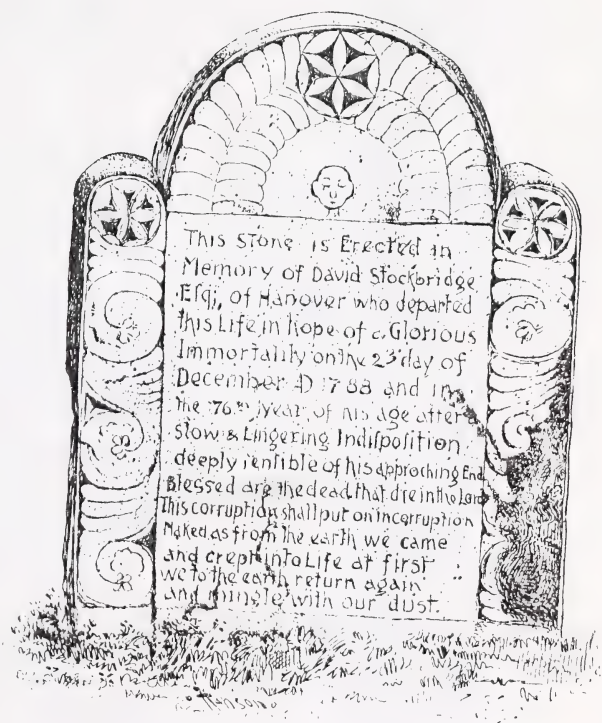 This Stone is Erected in
Memory of David Stockbridge
Esqr, of Hanover who departed
this Life in hope of a Glorious
Immortality on the 23d day of
December AD 1788 and in
the 76th year of his age after a
slow & Lingering Indiſpoſition
deeply ſenſible of his approching End
Blessed are the dead that die in the Lord
This corruption shall put on incorruption
Naked as from the earth we came
and crept into Life at first
we to the earth return again
and mingle with our dust.